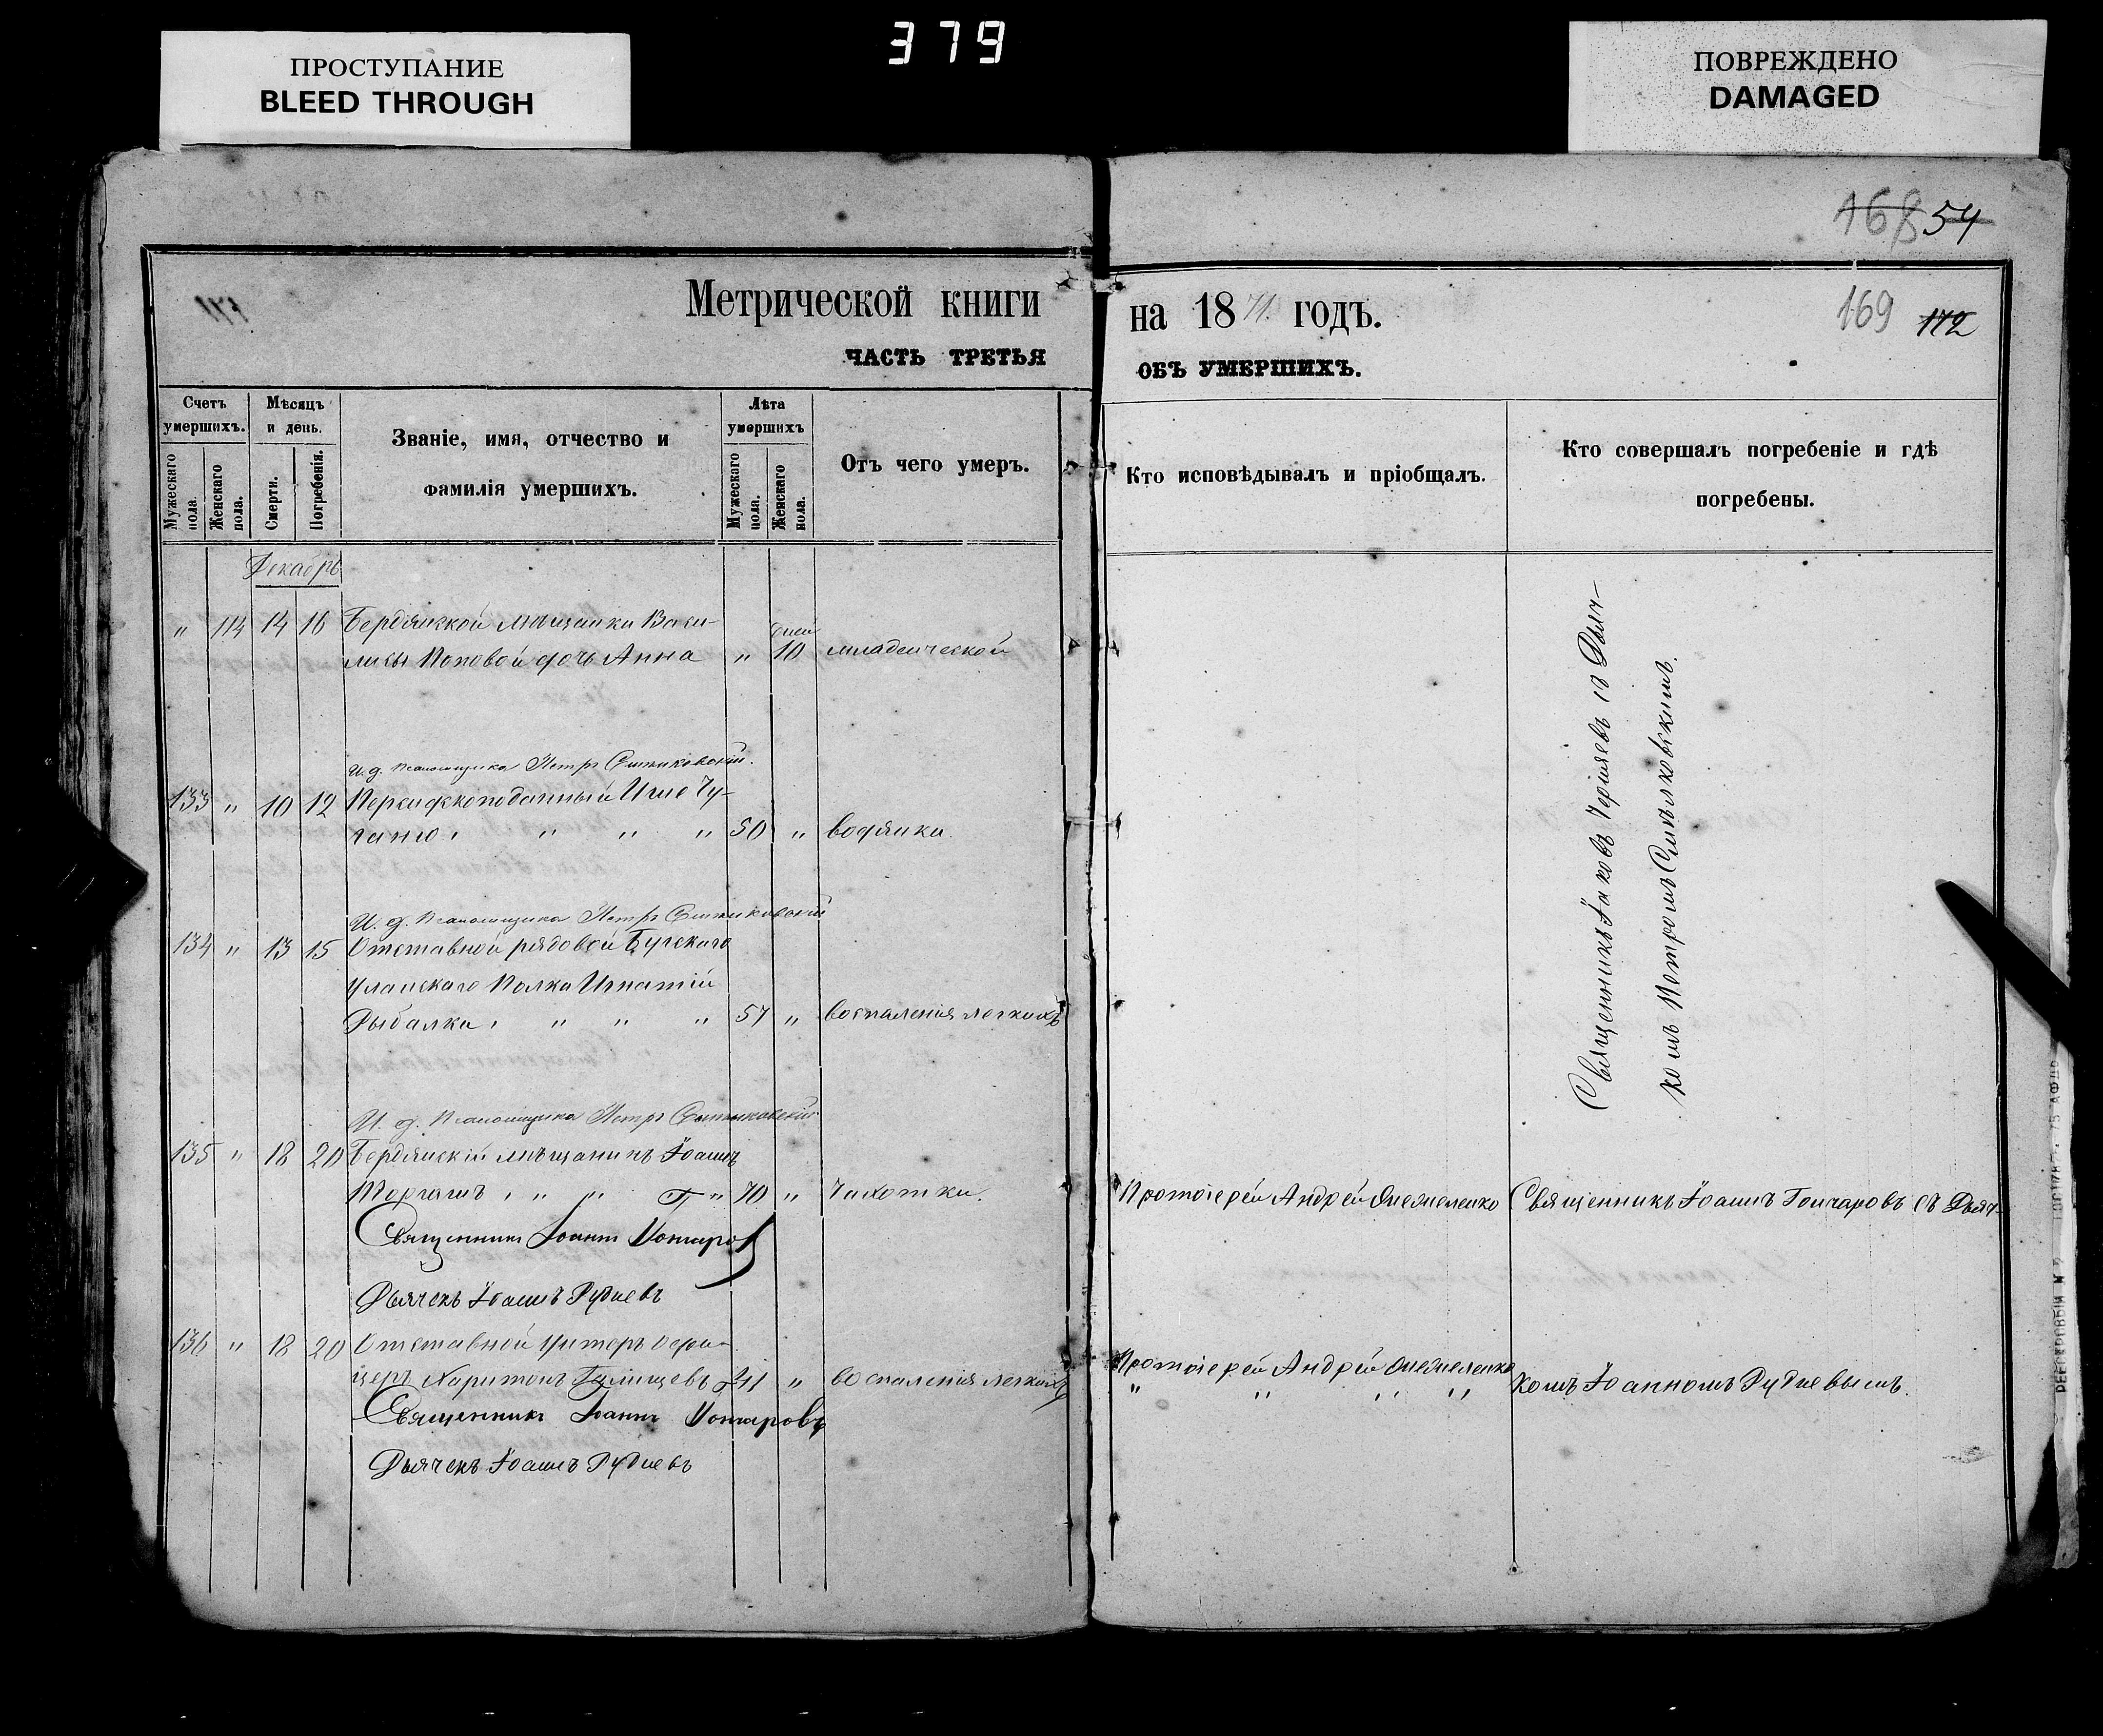 379
ПРОСТУПАНИЕ
BLEED THROUGH
ПОВРЕЖДЕНО
DAMAGED
168 54
169 172
171
Метрической книги
ЧАСТЬ ТРЕТЬЯ
на 1871. годъ.
ОБЪ УМЕРШИХЪ.
Счетъ умершихъ.
Мужескаго пола.
Женскаго пола.
Мѣсяцъ и день.
Смерти.
Погребенія.
Званіе, имя, отчество и
фамилія умершихъ.
Лѣта умершихъ
Мужескаго пола.
Женскаго пола.
Отъ чего умеръ.
Кто исповѣдывалъ и пріобщалъ.
Кто совершалъ погребеніе и гдѣ
погребены.
Декабрь
" 114 14 16 Бердянской мѣщанки Васи-
лисы Поповой дочь Анна " дней 10 младенческой
И. д. Псаломщика Петръ
133 " 10 12 Персидскоподанный
" " " 50 " водянки.
И. д. Псаломщика Петръ
134 " 13 15 Отставной рядовой Бугскаго
Уланскаго Полка Игнатій
Рыбалка " " " 57 " воспаленія легкихъ
И. д. Псаломщика Петръ
135 " 18 20 Бердянскій мѣщанинъ Іоаннъ
" " " 70 " Чахотки.
Священникъ Іоаннъ Гончаровъ
Дьячекъ Іоаннъ Рудневъ
136 " 18 20 Отставной унтеръ офи-
церъ Харитонъ 41 " воспаленія легкихъ
Священникъ Іоаннъ Гончаровъ
Дьячекъ Іоаннъ Рудневъ
Священникъ Іаковъ Черняевъ съ Дьяч-
комъ Петромъ
Протоіерей Андрей
Священникъ Іоаннъ Гончаровъ съ Дьяч-
Протоіерей Андрей
" " " "
комъ Іоанномъ Рудневымъ.